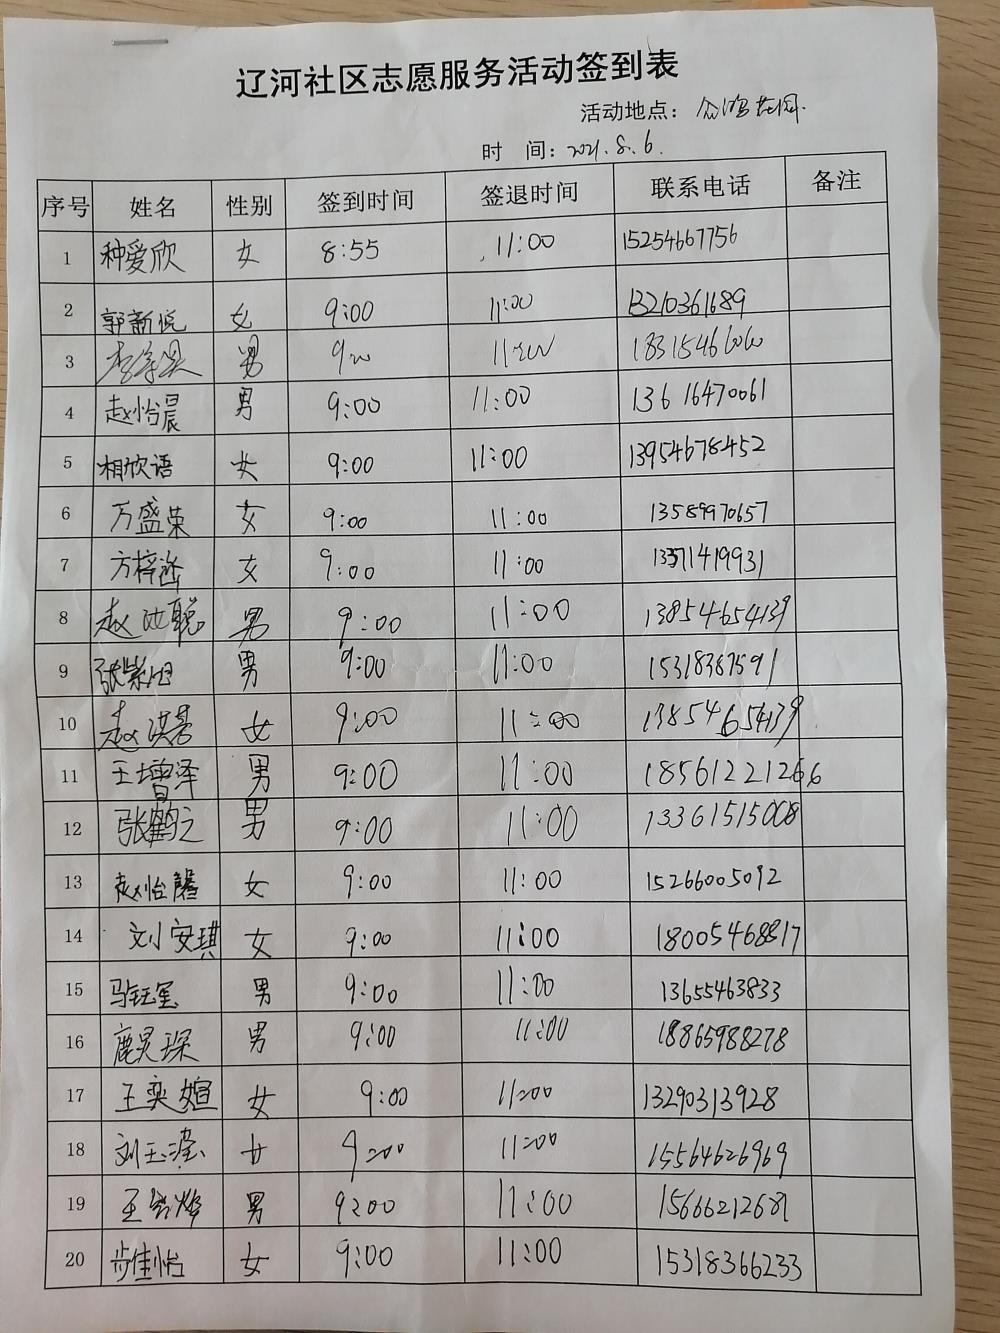 辽河社区志愿服务活动签到表
活动地点：众鸿花园
时 间：2021.8.6.
序号 姓名 性别 签到时间 签退时间 联系电话 备注
1 种爱欣 女 8:55 11:00 15254667756
2 郭新悦 女 9:00 11:00 13210361689
3 男 9:00 11:00 18315466060
4 赵怡晨 男 9:00 11:00 13616470061
5 相欣语 女 9:00 11:00 13954678452
6 万盛荣 女 9:00 11:00 13589970657
7 方梓 女 9:00 11:00 13371419931
8 赵汝聪 男 9:00 11:00 13854654139
9 张紫旭 男 9:00 11:00 15318387591
10 赵淇善 女 9:00 11:00 13854654139
11 王增泽 男 9:00 11:00 18561221266
12 张鹤之 男 9:00 11:00 13361515008
13 赵怡馨 女 9:00 11:00 15266005092
14 刘安琪 女 9:00 11:00 18005468817
15 男 9:00 11:00 13655463833
16 鹿昊琛 男 9:00 11:00 18865988278
17 王奕媗 女 9:00 11:00 13290313928
18 刘玉滢 女 9:00 11:00 15564626969
19 王 男 9:00 11:00 15666212681
20 步佳怡 女 9:00 11:00 15318366233